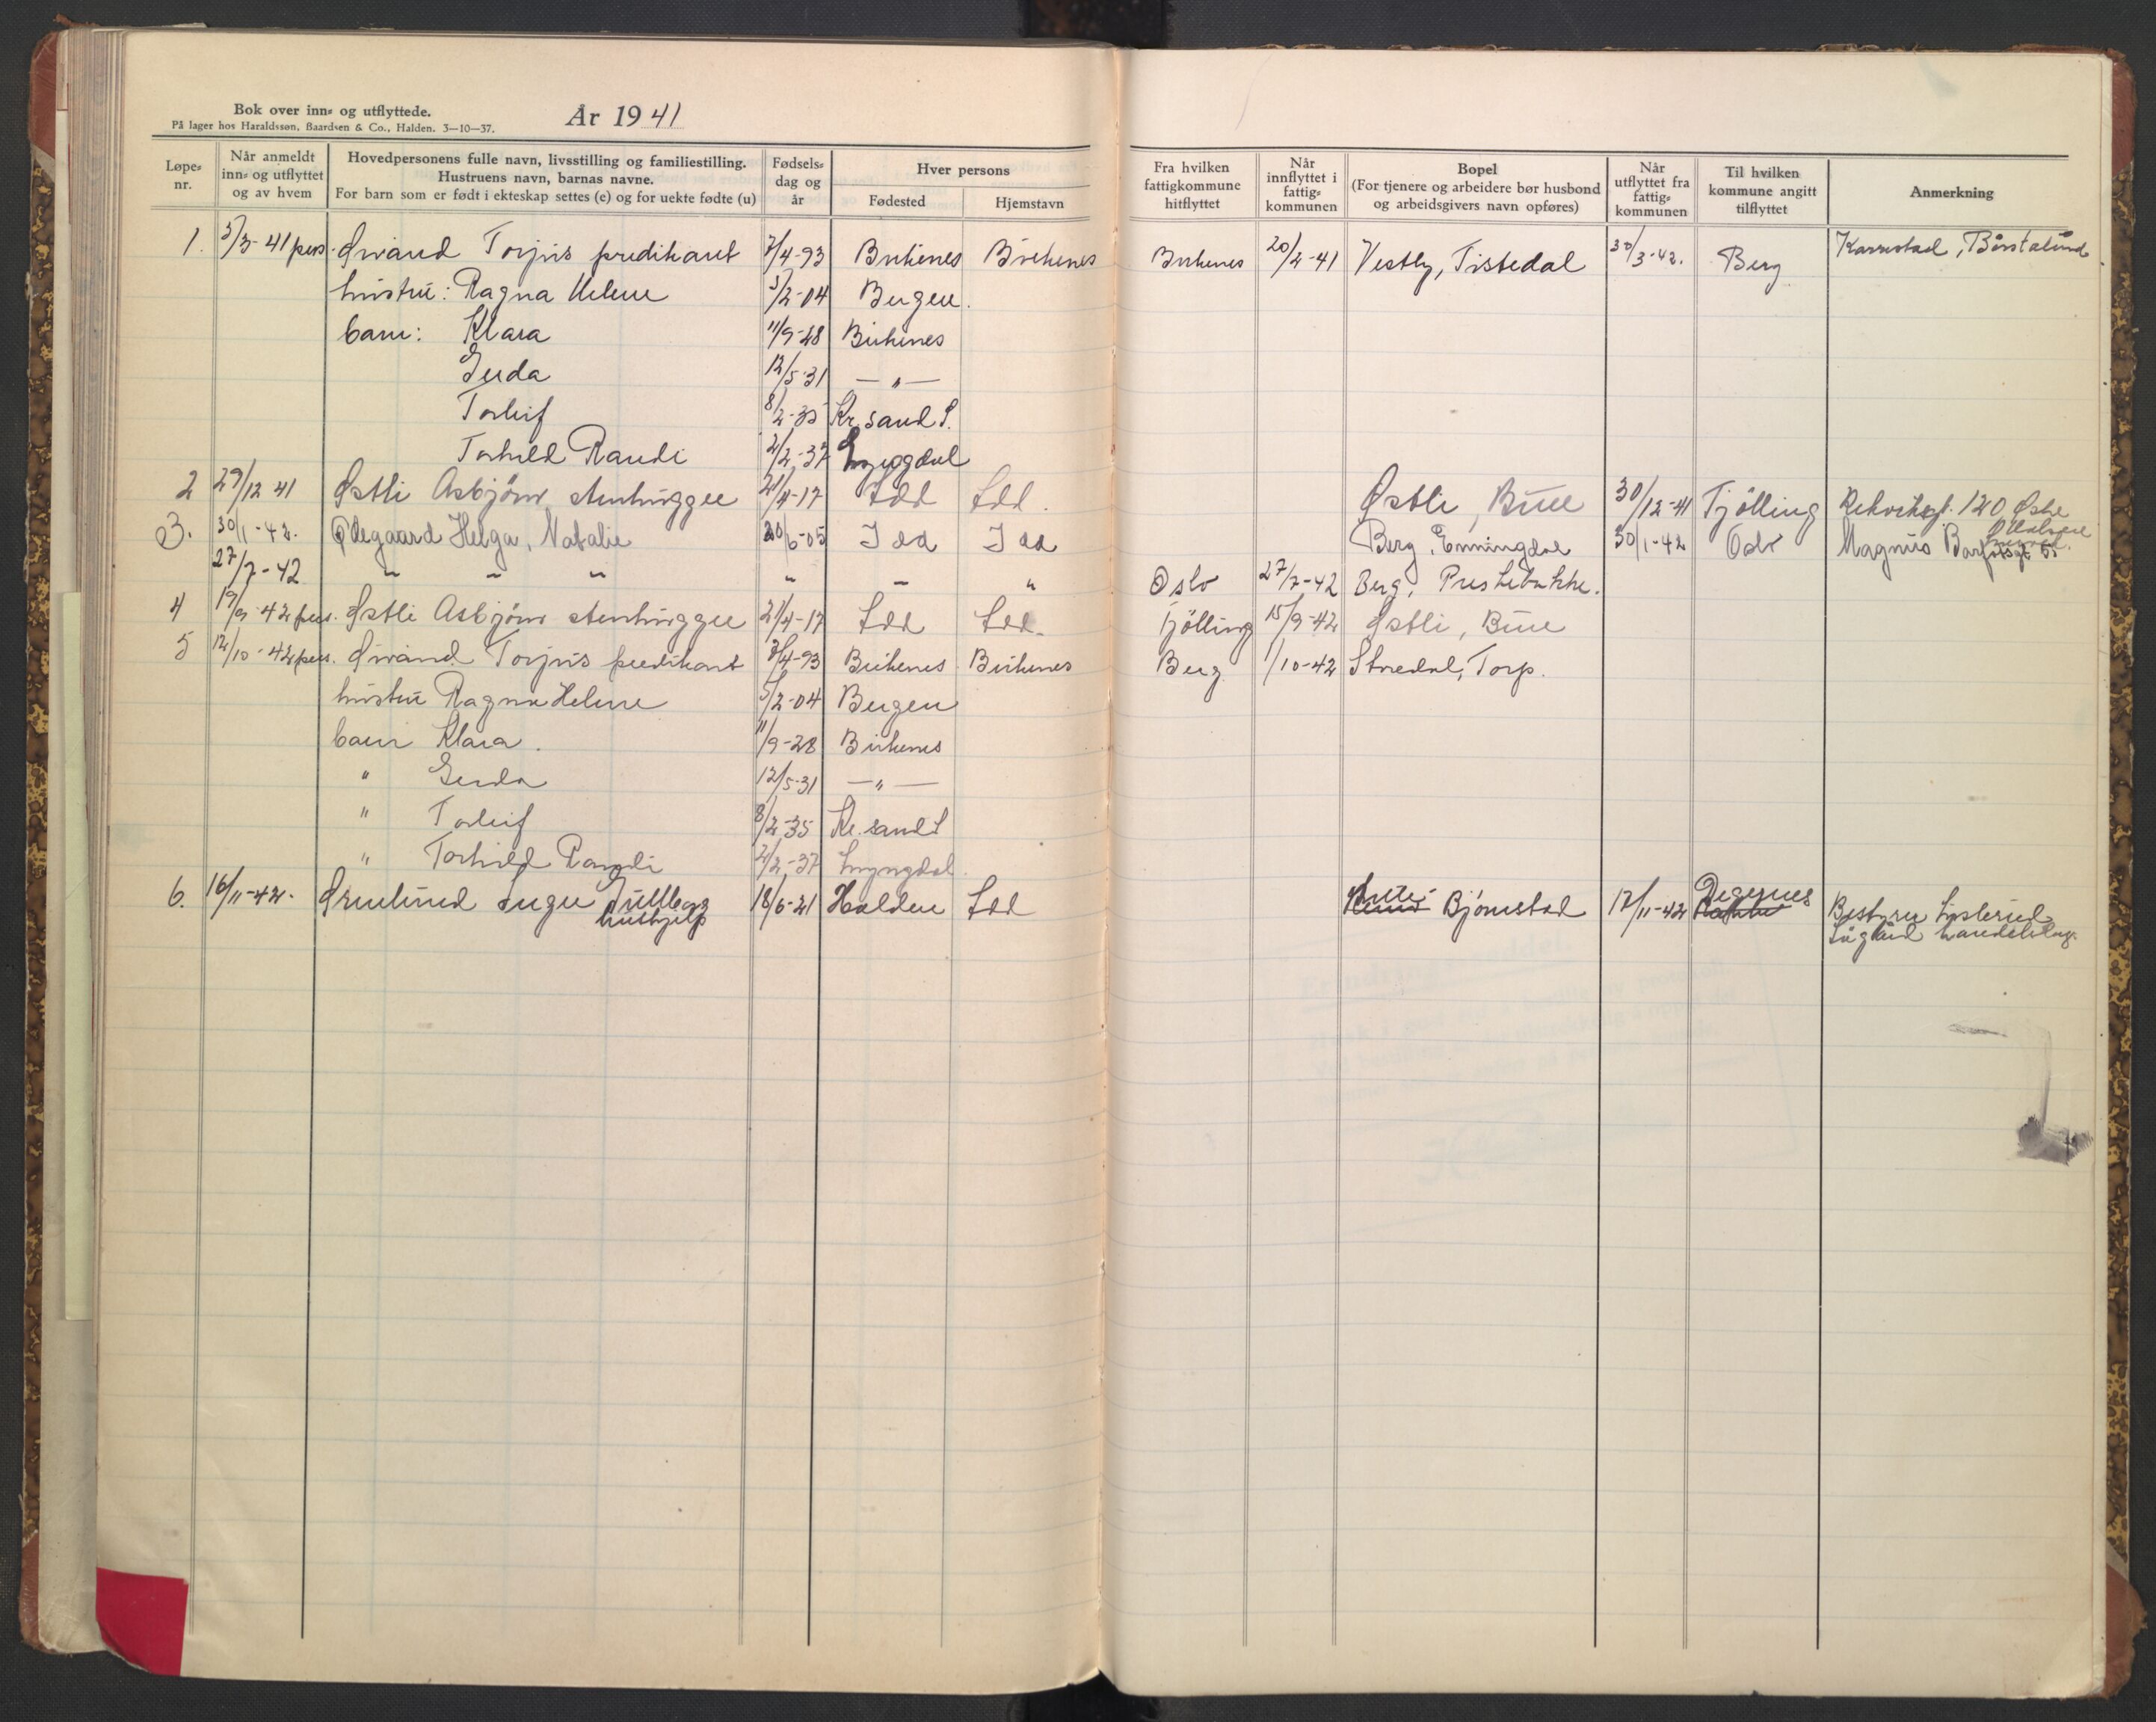 Bok over inn- og utflyttede.
På lager hos Haraldssøn, Baardsen & Co., Halden. 3—10—37.
År 1941
Løpe-nr. Når anmeldt inn- og utflyttet og av hvem Hovedpersonens fulle navn, livsstilling og familiestilling. Hustruens navn, barnas navne. For barn som er født i ekteskap settes (e) og for uekte fødte (u) Fødsels-dag og år Hver persons Fødested Hjemstavn Fra hvilken fattigkommune hitflyttet Når innflyttet i fattig-kommunen Bopel (For tjenere og arbeidere bør husbond og arbeidsgivers navn opføres) Når utflyttet fra fattig-kommunen Til hvilken kommune angitt tilflyttet Anmerkning
1. 5/3-41 pers. Øivand Torjus predikant 7/4-93 Birkenes Birkenes Birkenes 20/2-41 Vestby, Tistedal 30/3-42. Berg Karrestad,
hustru: Ragna Helene 5/2-04 Bergen.
barn: Klara 11/9-28 Birkenes
Gerda 12/5-31 — " —
Torleif 8/2-35 Kr.sand S.
Torhild Randi 2/2-37 Lyngdal
2 29/12 41 Østli Asbjørn stenhugger 21/4-17 Idd Idd. Østli, Buer 30/12-41 Tjölling 120 Østre
3. 30/1-42. Ødegaard Helga, Natalie 20/6-05 Idd Idd Berg, Enningdal 30/1-42 Oslo Magnus Barfotsgt 5
27/7-42 " " " " " " Oslo 27/7-42 Berg, Prestebakke.
4 19/9-42 pers. Østli Asbjørn stenhugger 21/4-17 Idd Idd. Tjölling 15/9-42 Østli, Buer
5 12/10-42 pers. Øivand Torjus predikant 7/4-93 Birkenes Birkenes Berg 1/10-42 Stredal, Torp.
hustru Ragna Helene 5/2-04 Bergen
barn Klara. 11/9-28 Birkenes
" Gerda 12/5-31 — " —
" Torleif 8/2-35 Kr.sand S
" Torhild Randi 2/2-37 Lyngdal.
6. 16/11-42. Inger Gullborg 18/6-21 Halden Idd Bjørnstad 17/11-42 Degernes Bestyrer
hushjelp handelslag.